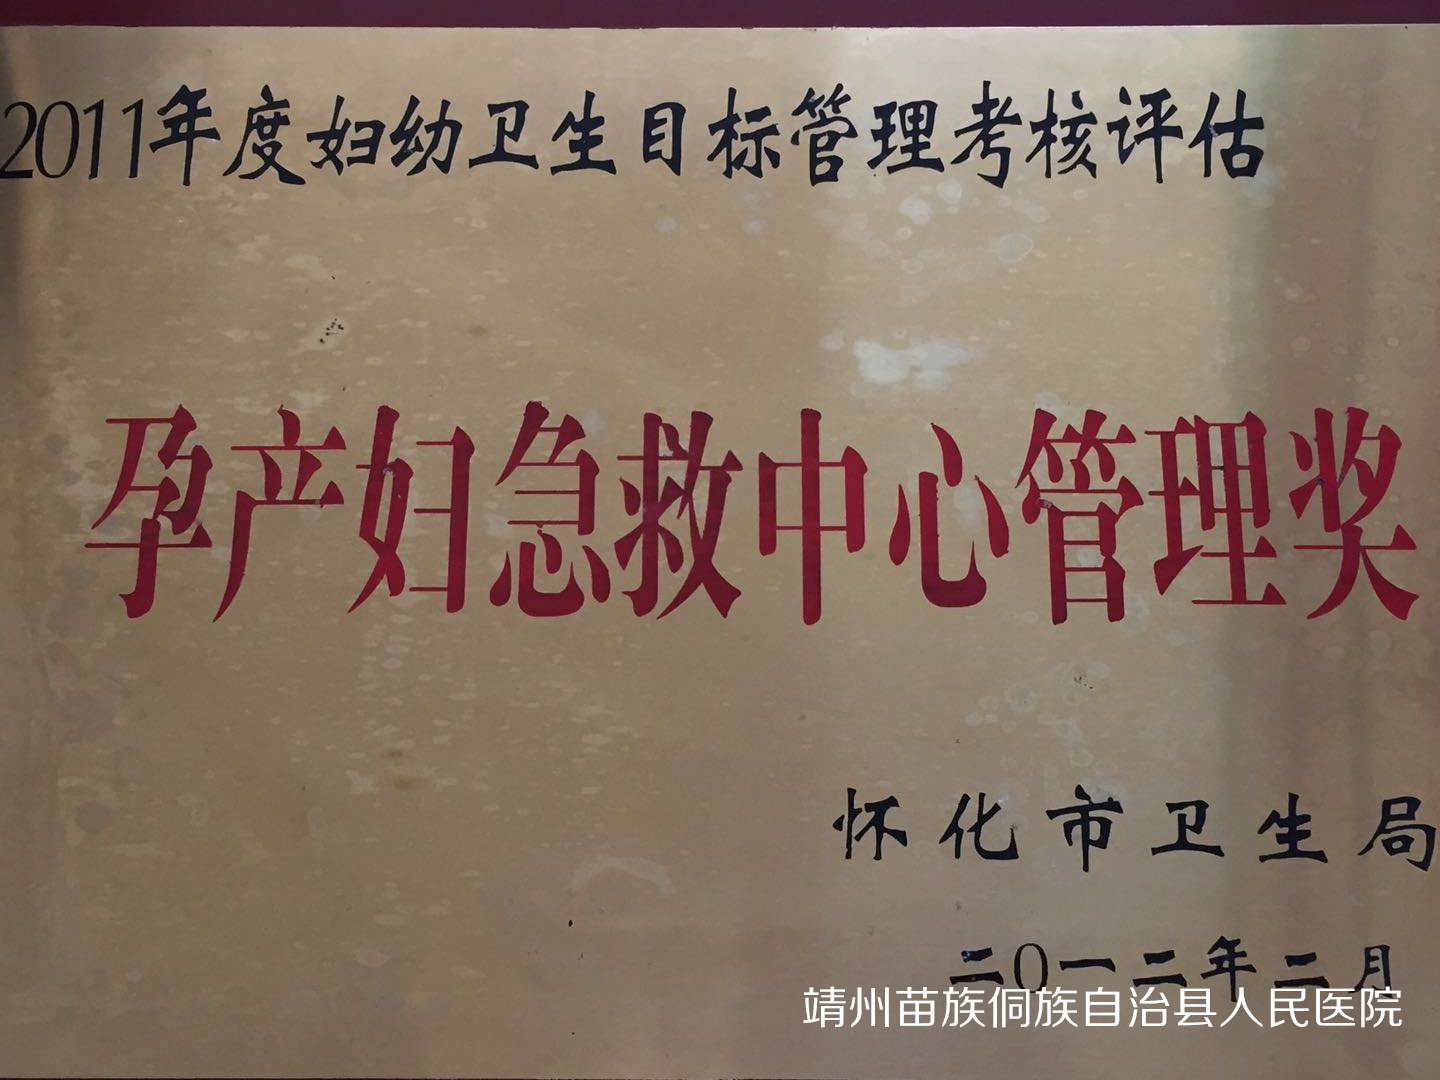 2011年度妇幼卫生目标管理考核评估
孕产妇急救中心管理奖
怀化市卫生局
二0一二年二月
靖州苗族侗族自治县人民医院